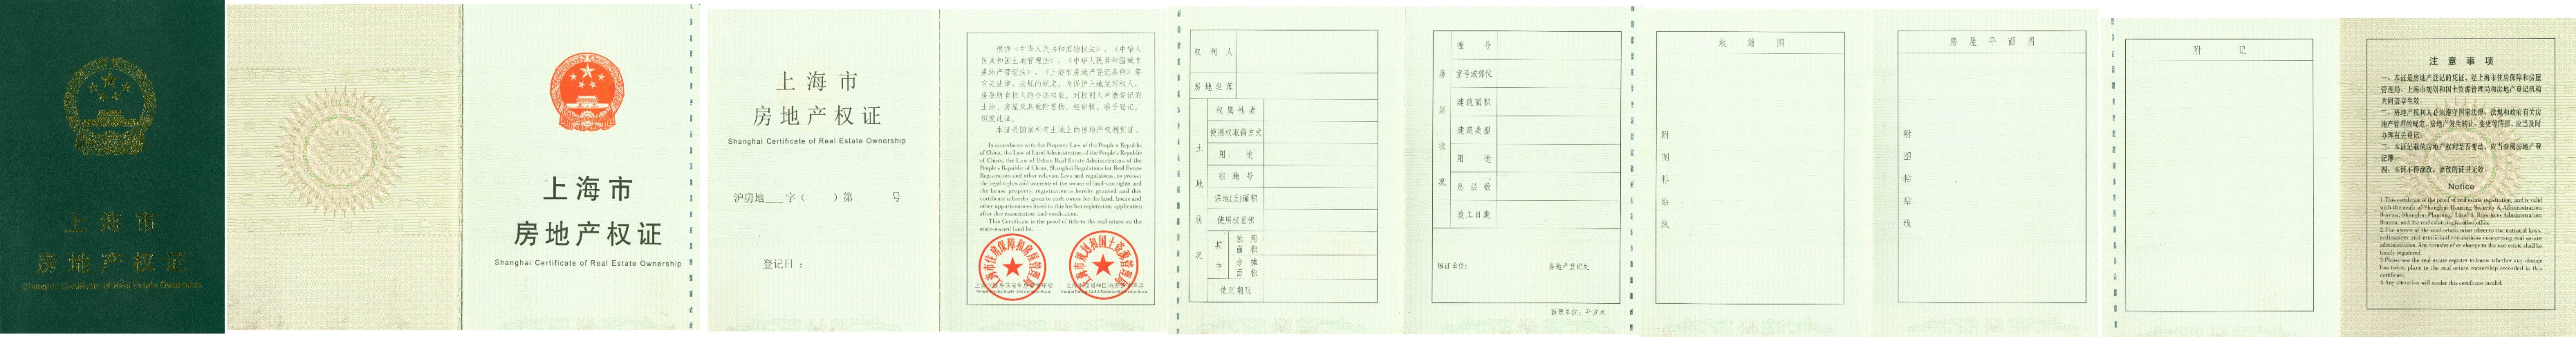 上海市
房地产权证
Shanghai Certificate of Real Estate Ownership
上海市
房地产权证
Shanghai Certificate of Real Estate Ownership
上海市
房地产权证
Shanghai Certificate of Real Estate Ownership
沪房地___字（ ）第 号
登记日：
根据《中华人民共和国物权法》、《中华人
民共和国土地管理法》、《中华人民共和国城市
房地产管理法》、《上海市房地产登记条例》等
有关法律、法规的规定，为保护土地使用权人、
房屋所有权人的合法权益，对权利人申请登记的
土地、房屋及其他附着物，经审核，准予登记，
颁发此证。
本证是国家所有土地上的房地产权利凭证。
In accordance with the Property Law of the People's Republic
of China, the Law of Land Administration of the People's Republic
of China, the Law of Urban Real Estate Administration of the
People's Republic of China, Shanghai Regulations for Real Estate
Registration and other relevant laws and regulations, to protect
the legal rights and interests of the owner of land-use rights and
the house property, registration is hereby granted and this
certificate is hereby given to such owner for the land, house and
other appurtenances listed in this his/her registration application
after due examination and verification.
This Certificate is the proof of title to the real estate on the
state-owned land lot.
上海市住房保障和房屋管理局
上海市规划和国土资源管理局
权利人
房地坐落
土地状况
权属性质
使用权取得方式
用途
宗地号
宗地(丘)面积
使用权面积
其中
独用面积
分摊面积
使用期限
房屋状况
幢号
室号或部位
建筑面积
建筑类型
用途
总层数
竣工日期
填证单位：
房地产登记处
面积单位：平方米
地籍图
附图粘贴线
房屋平面图
附图粘贴线
附记
注意事项
一、本证是房地产登记的凭证，经上海市住房保障和房屋
管理局、上海市规划和国土资源管理局和房地产登记机构
共同盖章生效。
二、房地产权利人必须遵守国家法律、法规和政府有关房
地产管理的规定，房地产发生转让、变更等情形，应当及时
办理有关登记。
三、本证记载的房地产权利是否变动，应当查阅房地产登
记簿。
四、本证不得涂改，涂改的证书无效。
Notice
1.This certificate is the proof of real estate registration, and is valid
with the seals of Shanghai Housing Security & Administration
Bureau, Shanghai Planning, Land & Resources Administration
Bureau, and the real estate registration office.
2.The owner of the real estate must observe the national laws,
ordinances and municipal regulations concerning real estate
administration. Any transfer of or change to the real estate shall be
timely registered.
3.Please see the real estate register to know whether any change
has taken place to the real estate ownership recorded in this
certificate.
4.Any alteration will render this certificate invalid.